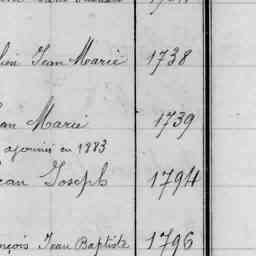 Jean Marie 1738
Marie 1739
ajourné en 1883
Jean Joseph 1794
Jean Baptiste 1796